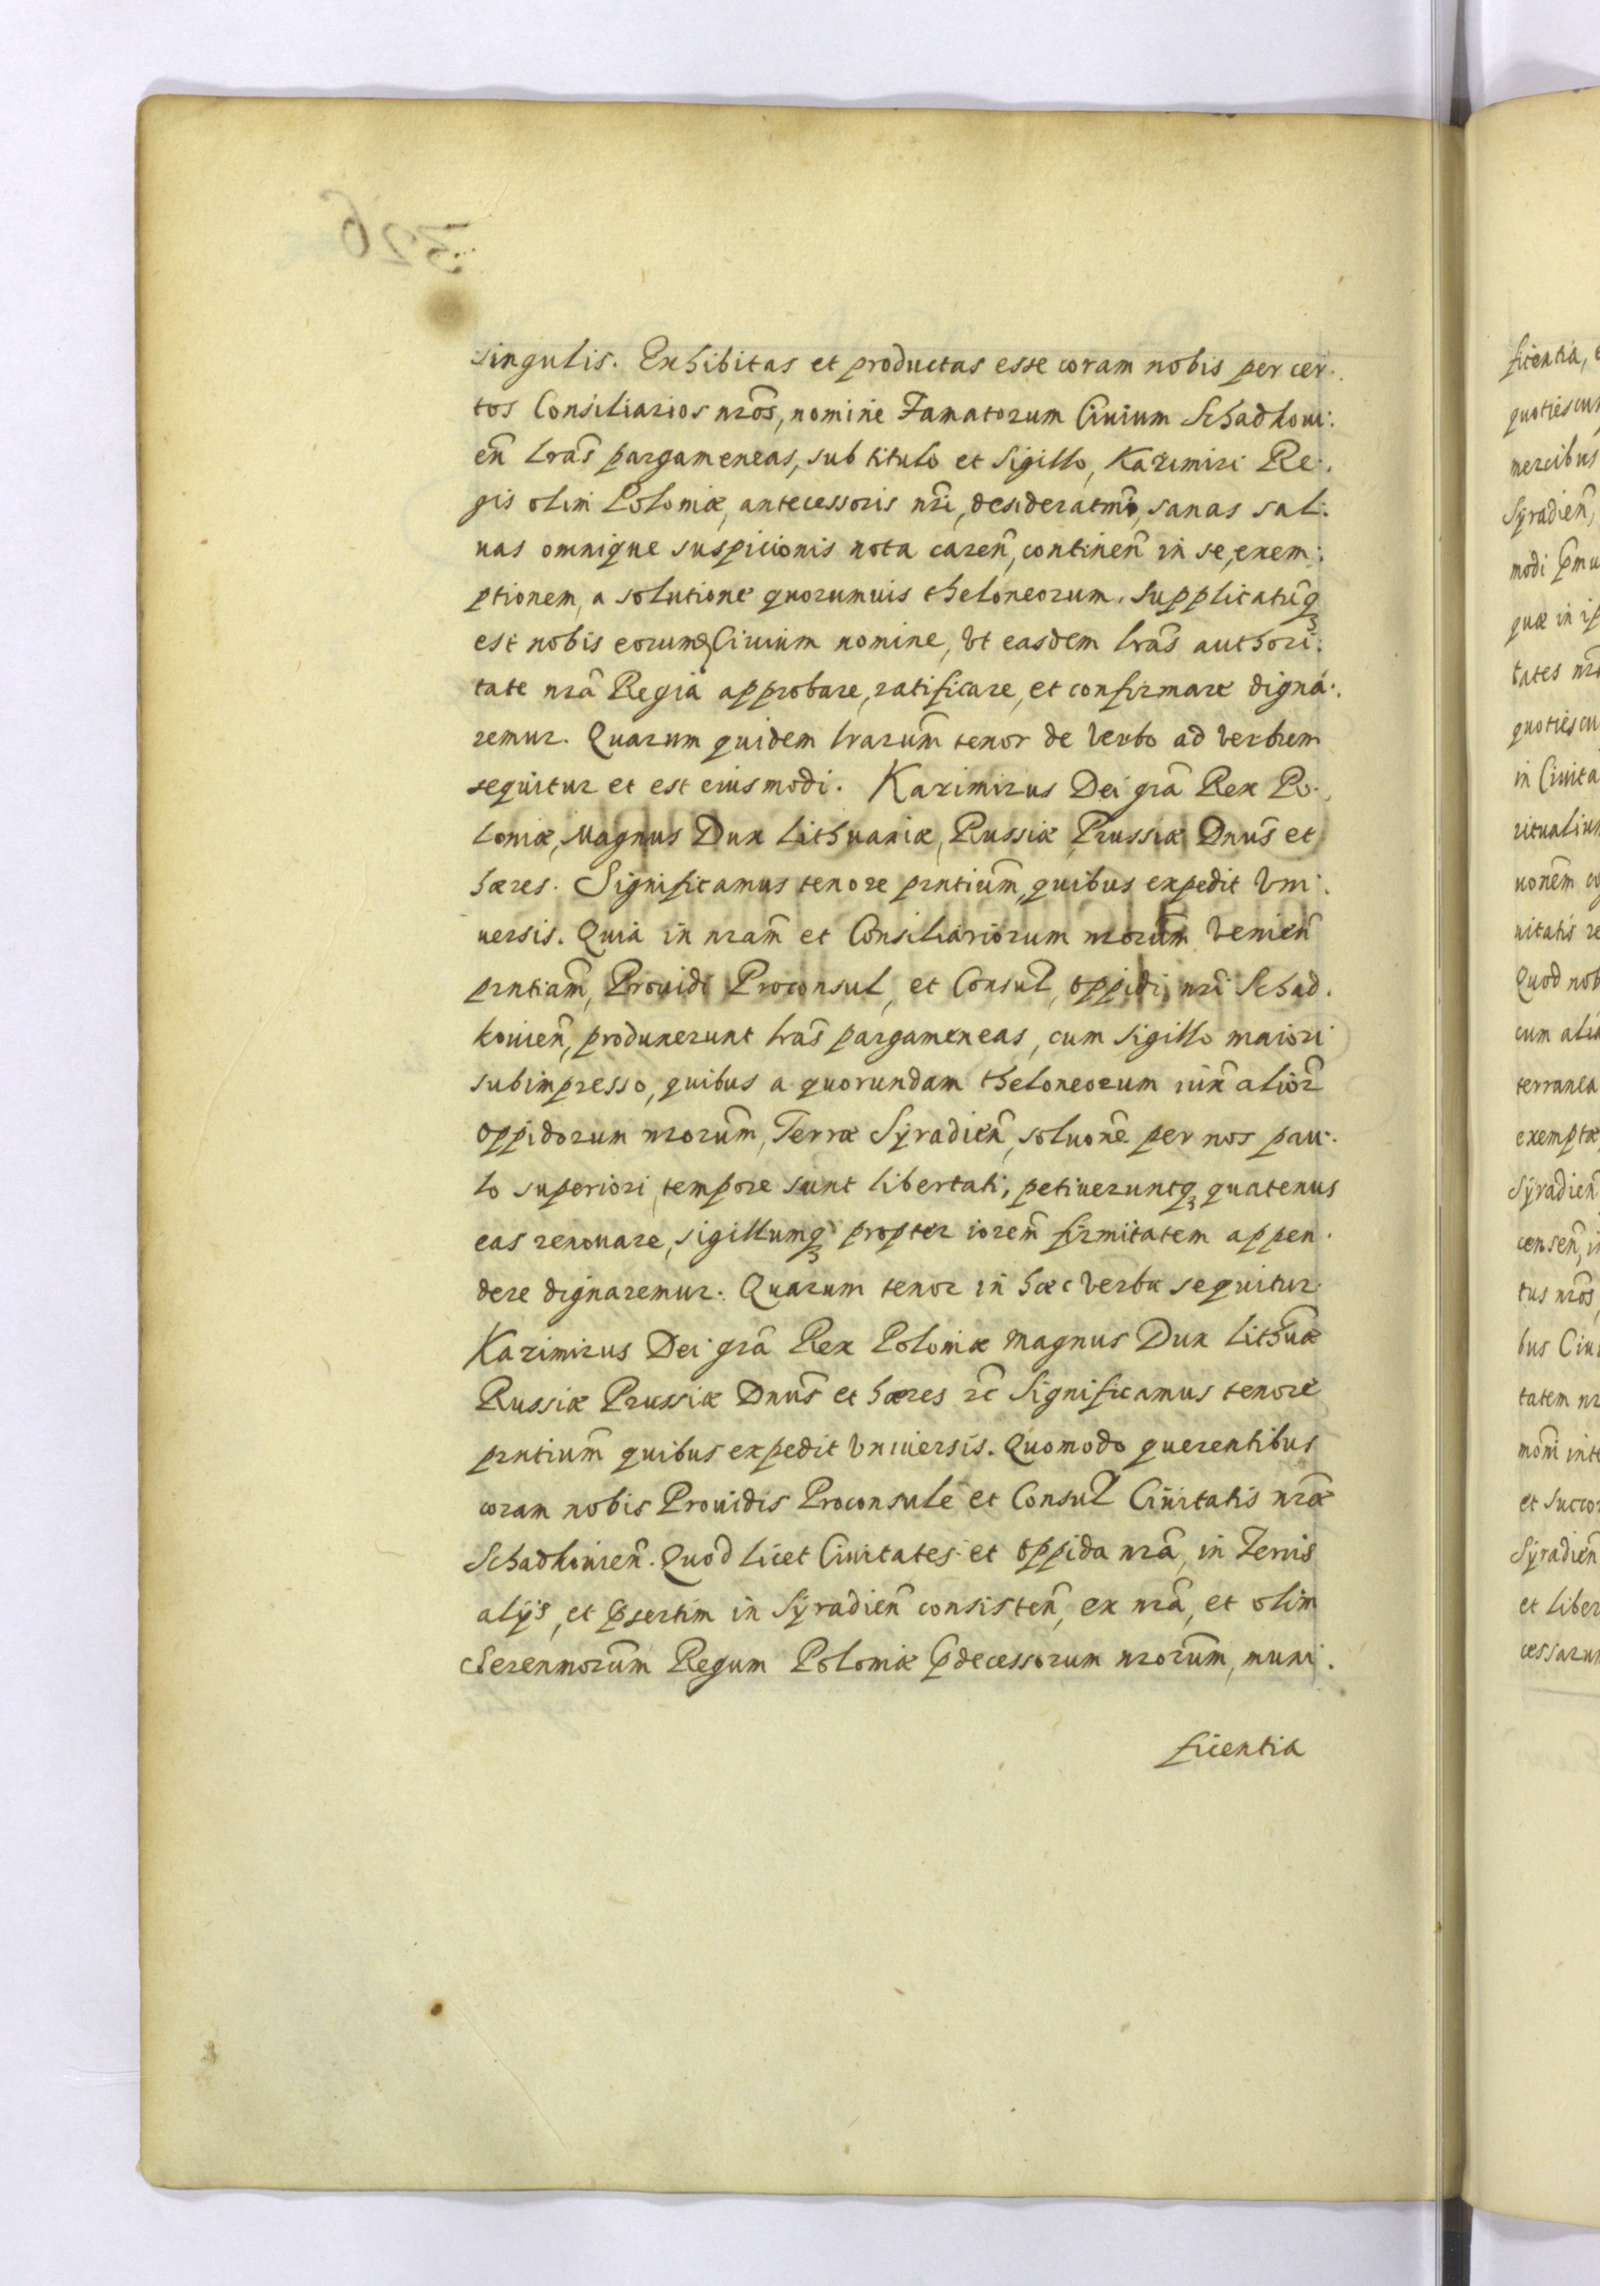 singulis. Exhibitas et productas esse coram nobis per cer.
tos Consiliarios nrõs, nomine Famatorum Ciuium Schadkoui:
eñ lrãs pargameneas, sub titulo et Sigillo, Kazimiri Re:
gis olim Poloniæ, antecessoris nrĩ, desideratmo, sanas sal:
uas omnique suspicionis nota careñ, contineñ in se, exem:
ptionem, a solutione quorumuis theloneorum. Supplicatũq3
est nobis eorum Ciuium nomine, Vt easdem lrãs authori:
tate nrã Regia approbare, ratificare, et confirmare digna:
remur. Quarum quidem lrarum̃ tenor de Verbo ad Verbum
sequitur et est eiusmodi. Kazimirus Dei grã Rex Po.
loniæ, Magnus Dux Lithuaniæ, Russiæ Prussiæ Dnus̃ et
hæres. Significamus tenore prntium̃, quibus expedit Vni:
uersis. Quia in nram̃ et Consiliariorum nrorum̃ Venieñ
prntiam̃, Prouidi Proconsul, et Consul̃, Oppidi, nrĩ Schad.
kouieñ, produxerunt lrãs pargameneas, cum Sigillo maiori
subimpresso, quibus a quorundam theloneorum iux̃ alior̃
Oppidorum nrorum̃, Terræ Syradieñ, soluonẽ per nos pau:
lo superiori tempore sunt libertati, petiueruntq3 quatenus
eas renouare, sigillumq3 propter iorem̃ firmitatem appen.
dere dignaremur. Quarum tenor in hæc Verba sequitur.
Kazimirus Dei grã Rex Poloniæ Magnus Dux Lithuæ̃
Russiæ Prussiæ Dnus̃ et hæres rc̃ Significamus tenore
prntium̃ quibus expedit Vniuersis. Quomodo querentibus
coram nobis Prouidis Proconsule et Consul̃ Ciuitatis nræ̃
Schadkouieñ. Quod licet Ciuitates et Oppida nrã, in Terris
alijs, et p̃sertim in Syradieñ consisteñ, ex nrã, et olim
Serenmorum̃ Regum Poloniæ p̃decessorum nrorum̃, muni:
ficentia